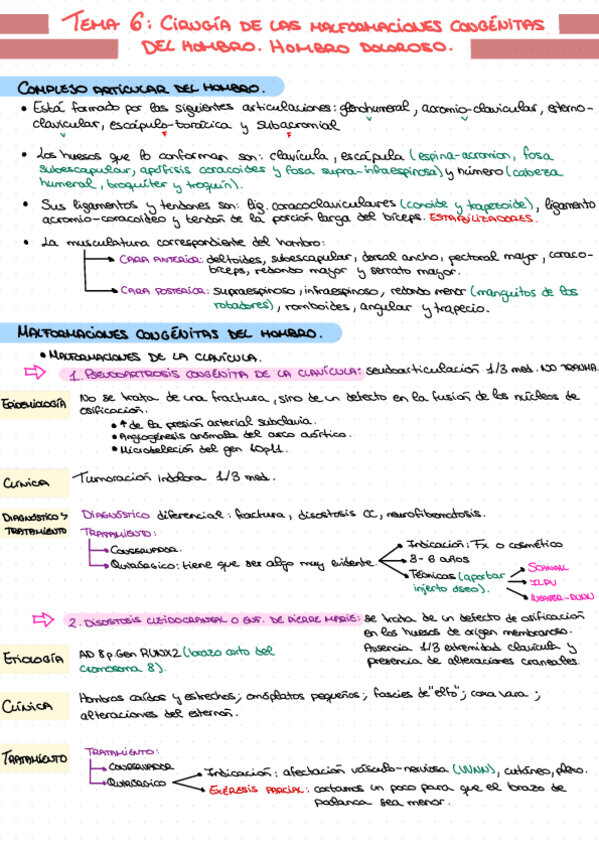 TEMA 6: CIRUGÍA DE LAS MALFORMACIONES CONGÉNITAS
DEL HOMBRO. HOMBRO DOLOROSO.
COMPLEJO ARTICULAR DEL HOMBRO.
• Está formado por las siguientes articulaciones: glenohumeral, acromio-clavicular, esterno-
clavicular, escápulo-torácica y subacromial
V V
V F F
• Los huesos que lo conforman son: clavícula, escápula (espina-acromion, fosa
subescapular, apófisis coracoides y fosa supra-infraespinosa) y húmero (cabeza
humeral, troquíter y troquín).
• Sus ligamentos y tendones son: lig. coracoclaviculares (conoide y trapezoide), ligamento
acromio-coracoideo y tendón de la porción larga del bíceps. ESTABILIZADORES.
• La musculatura correspondiente del hombro:
CARA ANTERIOR: deltoides, subescapular, dorsal ancho, pectoral mayor, coraco-
bíceps, redondo mayor y serrato mayor.
CARA POSTERIOR: supraespinoso, infraespinoso, redondo menor (manguitos de los
rotadores), romboides, angular y trapecio.
MALFORMACIONES CONGÉNITAS DEL HOMBRO.
• MALFORMACIONES DE LA CLAVÍCULA.
1. PSEUDOARTROSIS CONGÉNITA DE LA CLAVÍCULA: seudoarticulación 1/3 med. NO TRAUMA.
EPIDEMIOLOGÍA
No se trata de una fractura, sino de un defecto en la fusión de los núcleos de
osificación.
• ↑ de la presión arterial subclavia.
• Angiogénesis anómala del arco aórtico.
• Microdeleción del gen 10p11.
CLÍNICA
Tumoración indolora 1/3 med.
DIAGNÓSTICO Y
TRATAMIENTO
DIAGNÓSTICO diferencial: fractura, disostosis CC, neurofibromatosis.
TRATAMIENTO:
CONSERVADOR.
QUIRÚRGICO: tiene que ser algo muy evidente.
Indicación: Fx o cosmético
3-6 años
Técnicas (aportar
injerto óseo).
ILPV
WEAVER-DUNN
2. DISOSTOSIS CLEIDOCRANEAL O ENF. DE PIERRE MARIE: se trata de un defecto de osificación
en los huesos de origen membranoso.
Ausencia 1/3 extremidad clavícula y
presencia de alteraciones craneales.
ETIOLOGÍA
AD 8p. Gen RUNX2 (brazo corto del
cromosoma 8).
CLÍNICA
Hombros caídos y estrechos; omóplatos pequeños; fascies de "elfo"; coxa vara;
alteraciones del esternón.
TRATAMIENTO
TRATAMIENTO:
CONSERVADOR
QUIRÚRGICO
Indicación: afectación vásculo-nerviosa (VVNN), cutáneo, plexo.
EXÉRESIS PARCIAL: cortamos un poco para que el brazo de
palanca sea menor.